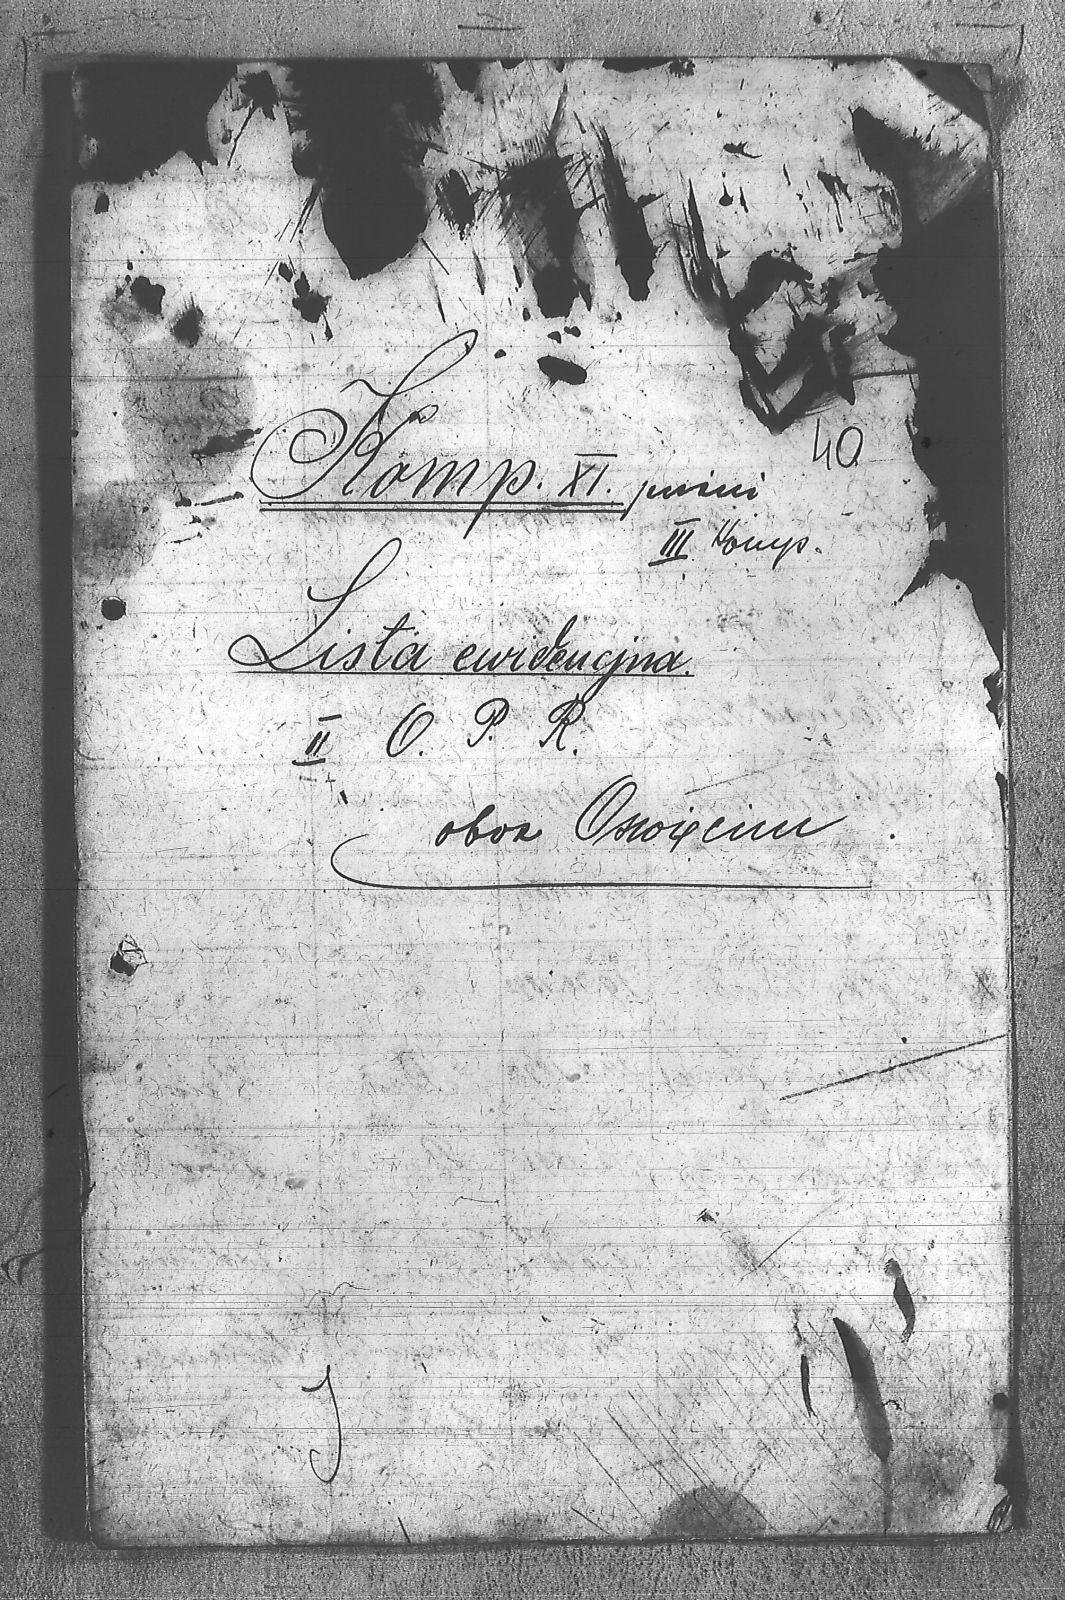 40
Komp. XI.
III Komp.
Lista ewidencyjna.
II O. P. R.
oboz Oswięcim
J